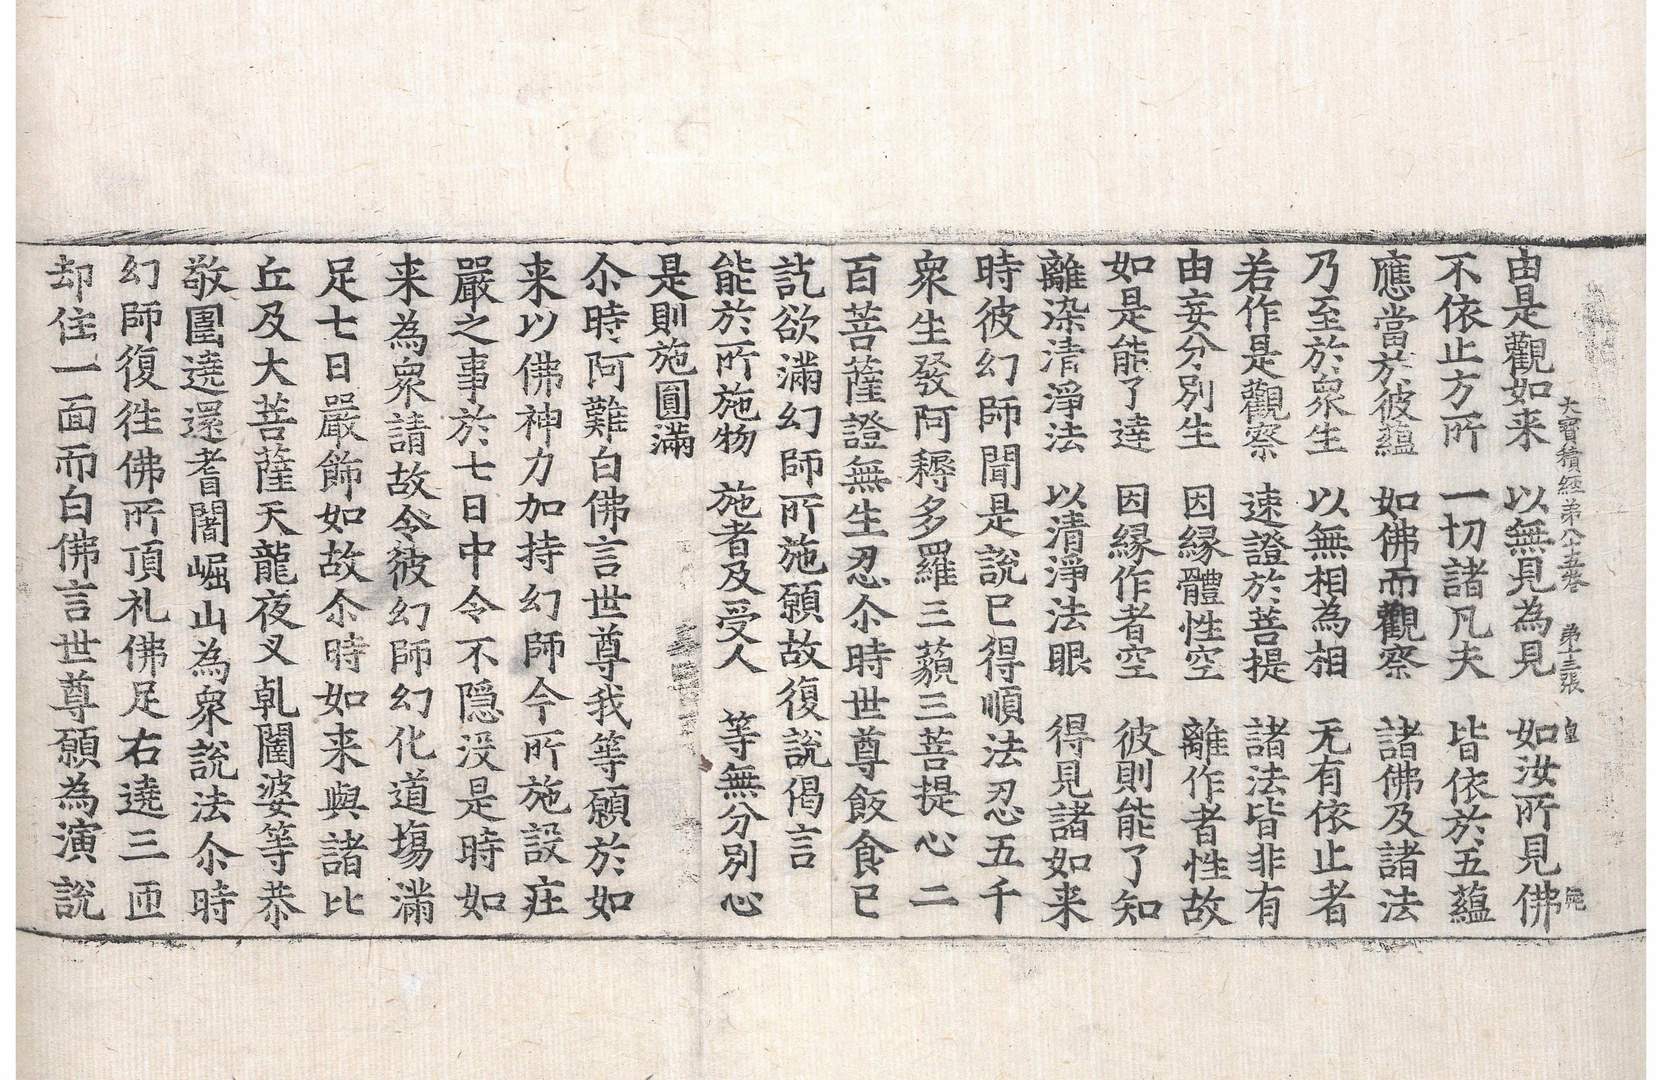 大寶積經弟八十五卷 弟十三張 皇
由是觀如来 以無見為見 如汝所見佛
不依止方所 一切諸凡夫 皆依於五蘊
應當於彼蘊 如佛而觀察 諸佛及諸法
乃至於衆生 以無相為相 无有依止者
若作是觀察 速證於菩提 諸法皆非有
由妄分別生 因縁體性空 離作者性故
如是能了達 因縁作者空 彼則能了知
離染清淨法 以清淨法眼 得見諸如来
時彼幻師聞是說已得順法忍五千
衆生發阿耨多羅三藐三菩提心二
百菩薩證無生忍尒時世尊飯食已
訖欲滿幻師所施願故復說偈言
能於所施物 施者及受人 等無分別心
是則施圓滿
尒時阿難白佛言世尊我等願於如
来以佛神力加持幻師今所施設莊
嚴之事於七日中令不隱没是時如
来為衆請故令彼幻師幻化道場滿
足七日嚴飾如故尒時如来與諸比
丘及大菩薩天龍夜叉乹闥婆等恭
敬圍遶還耆闍崛山為衆說法尒時
幻師復往佛所頂礼佛足右遶三匝
却住一面而白佛言世尊願為演說